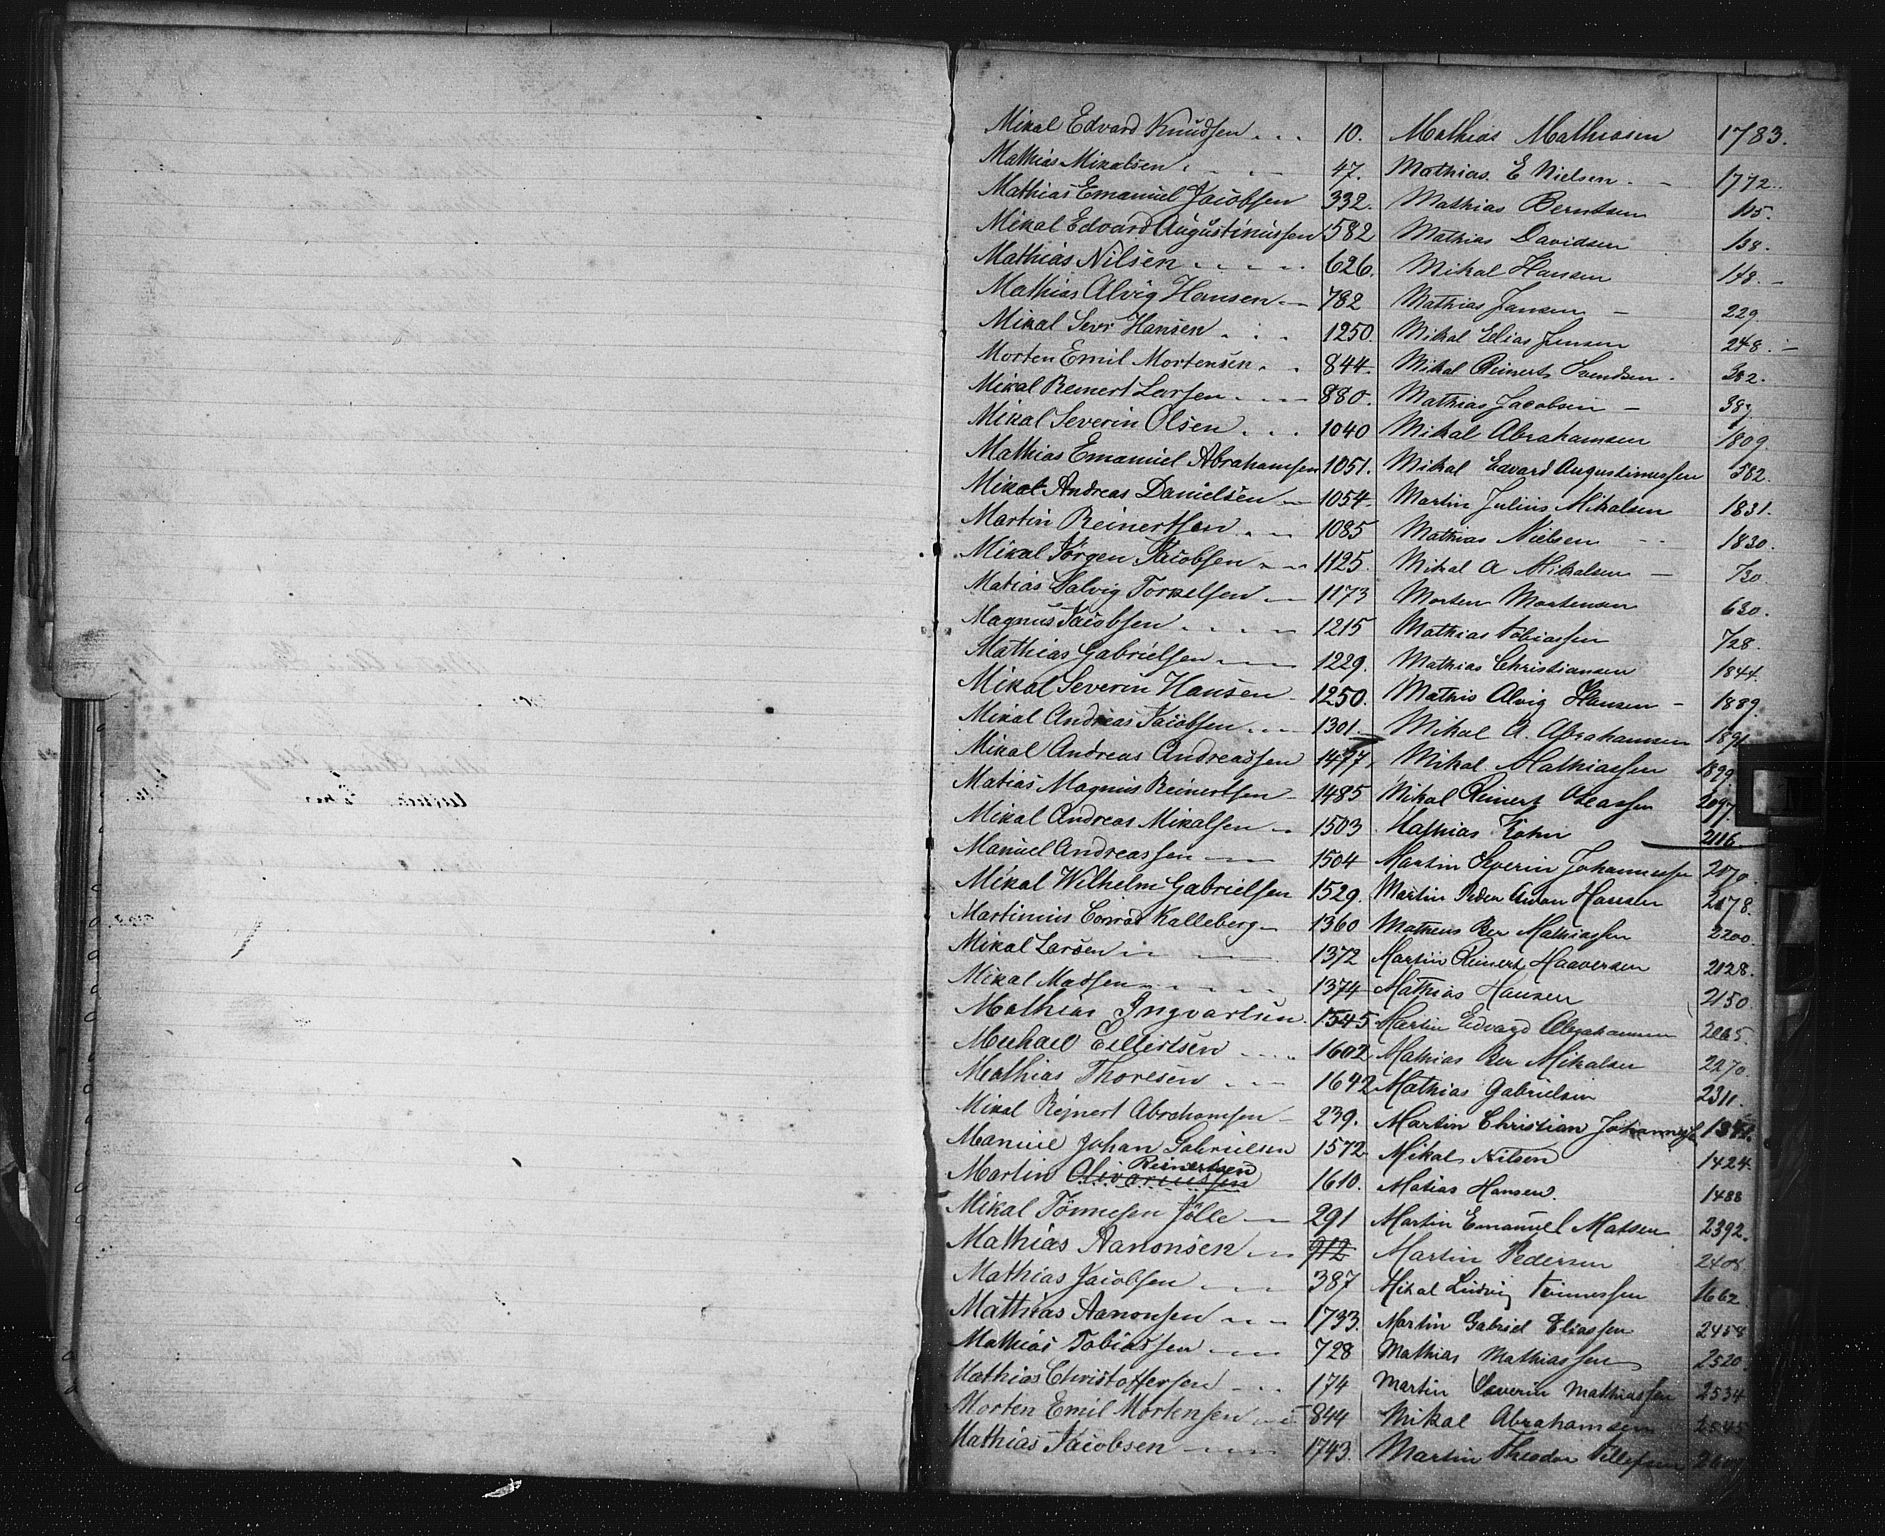 Mikal Edvard Knudsen . . . 10.
Mathias Mikalsen . . . 47.
Mathias Emanuel Jacobsen 332.
Mikal Edvard Augustinussen 582
Mathias Nilsen . . . . . 626.
Mathias Alvig Hansen — 782
Mikal Sevr Hansen . . . 1250.
Morten Emil Mortensen . . 844.
Mikal Reinert Larsen . . . — 880.
Mikal Severin Olsen . . . 1040
Mathias Emanuel Abrahamsen 1051.
Mikal Andreas Danielsen — 1054.
Martin Reinertsen . . — 1085
Mikal Jörgen Jacobsen — 1125.
Matias Salvig Torkelsen — 1173
Magnus Jacobsen . . . . . 1215
Mathias Gabrielsen — 1229.
Mikal Severin Hansen 1250.
Mikal Andreas Jacobsen . . . 1301
Mikal Andreas Andreassen 1477
Matias Magnus Reinertsen - 1485
Mikal Andreas Mikalsen — 1503
Manuel Andreassen — 1504
Mikal Wilhelm Gabrielsen 1529.
Martinius Conrad Kalleberg — 1360
Mikal Larsen — 1372
Mikal Madsen . . . . . 1374
Mathias Ingvartsen. 1545
Michael Eilertsen . . . . 1602
Mathias Thoresen . . — 1642
Mikal Rejnert Abrahamsen - 239.
Manuel Johan Gabrielsen 1572
Reinertsen
Martin Olivariussen 1610.
Mikal Tönnesen Jölle — 291
Mathias Aanonsen — 912
Mathias Jacobsen . . — 387
Mathias Aanonsen — 1733.
Mathias Tobiassen — 728
Mathias Christoffersen — . . 174
Morten Emil Mortensen — 844
Mathias Jacobsen — 1743.
Mathias Mathiasen 1783.
Mathias. E Nielsen. — 1772.
Mathias Berntsen 105.
Mathias Davidsen 138.
Mikal Hansen 148. —
Mathias Jansen — 229
Mikal Elias Jensen 248. —
Mikal Reinert Svendsen . 382.
Mathias Jacobsen — 387
Mikal Abrahamsen 1809.
Mikal Edvard Augustinussen 582.
Martin Julius Mikalsen 1831.
Mathias Nielsen - - 1830.
Mikal A Mikalsen — 730.
Morten Mortensen 630.
Mathias Tobiassen 728.
Mathias Christiansen 1844.
Mathis Alvig Hansen — 1889.
Mikal A. Abrahamsen 1891
Mikal. Mathiassen 1899
Mikal Reinert Oseassen 2097
Mathias Kohn 2116.
Martin Severin Johannessen 2170.
Martin Peder Anton Hansen 2178.
Matheus Ber Mathiassen 2200.
Martin Reinert Haaversen 2128.
Mathias Hansen 2150.
Martin Edvard Abrahamsen 2065.
Mathias Ber Mikalsen 2270.
Mathias Gabrielsen 2311.
Martin Christian Johannes
Mikal Nilsen 1424.
Matias Hansen. 1488
Martin Emanuel Matsen 2392.
Martin Pedersen 2408
Mikal Ludvig Tönnessen 1662
Martin Gabriel Eliassen 2458
Mathias Mathiassen 2520
Martin Severin Mathiassen 2534
Mikal Abrahamsen 2545
Martin Theodor Tellefsen